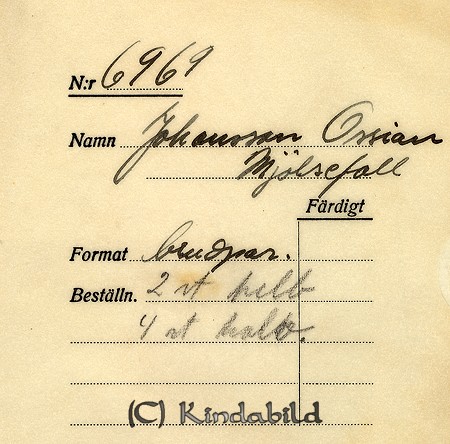 N:r 6969
Namn Johansson Ossian
Mjölsefall
Färdigt
Format brudpar.
Beställn. 2 st helb
4 st halb.
(C) Kindabild